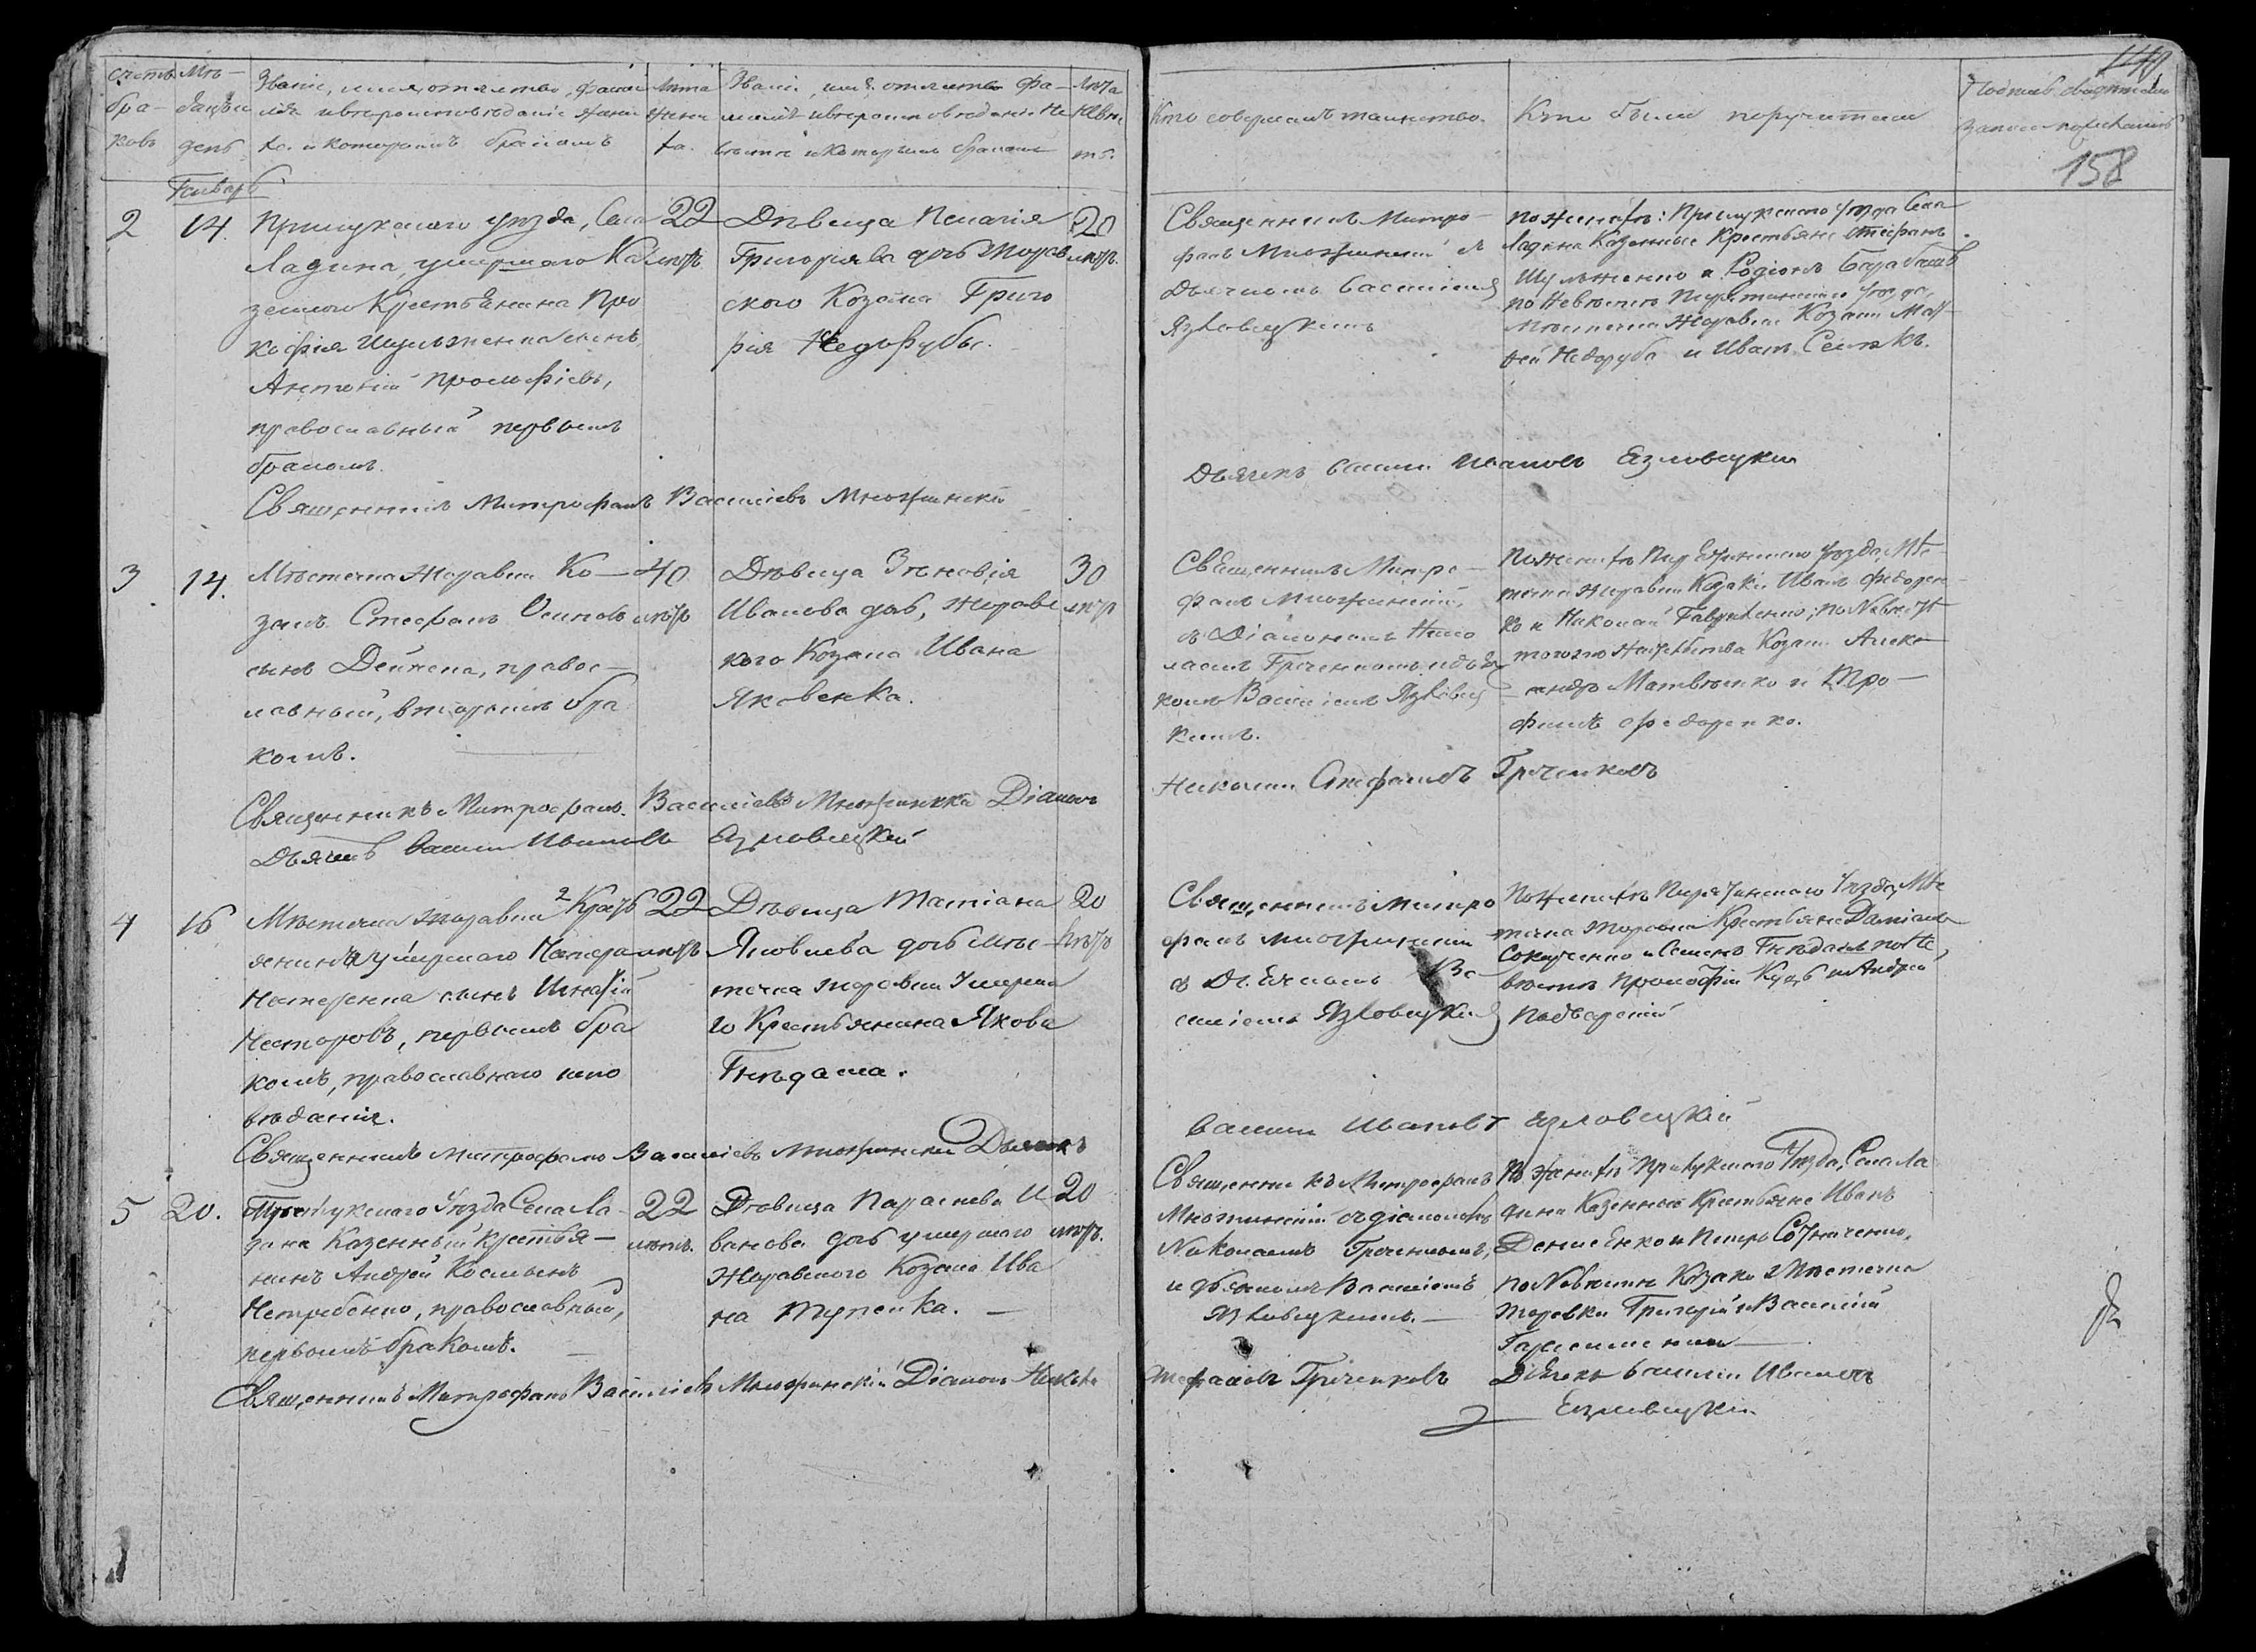 140
158
Счетъ бра- ковъ
Мѣ- сяцъ и день
Званіе, имя, отчество, фами-
лія и вѣроисповѣданіе жени-
ха и которымъ бракомъ
Лѣта жени ха.
Званіе, имя, отчество фа-
милія и вѣроисповѣданіе не
вѣсты и которымъ бракомъ
Лѣта невѣс тъ.
Кто совершалъ таинство.
Кто были поручители
Подпись свидѣтелей
записи по желанію
Генварь
2
14.
Прилукскаго уѣзда, Села
Ладина, умершаго Ка
зеннаго Крестьянина Про
кофія Шульженка сынъ
Антоній Прокофіевъ,
православный первымъ
бракомъ.
22
лѣтъ
Дѣвица Пелагія
Григоріева дочь Журав
ского Козака Григо
рія Недорубы.
20
лѣтъ.
Священникъ Митро-
фанъ Множинскій съ
Дьячкомъ Василіемъ
Язловецкимъ
По женихѣ: Прилукскаго уѣзда Села
Ладина Казенные Крестьяне Стефанъ
Шульженко и Родіонъ Балабашъ
по Невѣстѣ Пирятинскаго уѣзда,
Мѣстечка Журавки Козаки Мат-
вей Недоруба и Иванъ
Священникъ Митрофанъ Василіевъ Множинскій
Дьячекъ Василій Ивановъ Езловецкій
3
14.
Мѣстечка Журавки Ко-
закъ Стефанъ Осиповъ
сынъ Дейнека, правос-
лавный, вторымъ бра
комъ.
40
лѣтъ
Дѣвица Зѣновія
Иванова дочь, Журавс
кого Козака Ивана
Яковенка.
30
лѣтъ
Священникъ Митро-
фанъ Множинскій,
съ Діакономъ Нико
лаемъ Греченкомъ и дьяч
комъ Василіемъ Язловец
кимъ.
По женихѣ Пирятинскаго уѣзда, Мѣс
течка Журавки Козаки Иванъ Федорен-
ко и Николай Гавриленко; по Невѣстѣ
того же Мѣстечка Козаки Алекс
андръ Матвѣенко и Тро-
фимъ Федоренко.
Священникъ Митрофанъ Василіевъ Множинскій Діаконъ
Николай Стефановъ Греченковъ
Дьячекъ Василій Ивановъ Езловецкій
4
16
Мѣстечка Журавки Кресть
янина умершаго Нестера
Нестеренка сынъ Игнатій
Несторовъ, первымъ бра
комъ, православнаго испо
вѣданія.
22
лѣтъ
Дѣвица Татіана
Яковлева дочь мѣс-
течка Журавки Умерша
го Крестьянина Якова
Гнѣдаша.
20
лѣтъ
Священникъ Митро
фанъ Множинскій
съ Дьячкомъ Ва
силіемъ Язловецкимъ
По женихѣ Пирятинскаго Уѣзда, Мѣс
течка Журавки Крестьяне Даміанъ
и Семенъ Гнѣдашъ по Не,
вѣстѣ Прокофій Куцъ и Андрей
Подварскій
Священникъ Митрофанъ Василіевъ Множинскій Дьячекъ
Василій Ивановъ Езловецкій
5
20.
Прилукскаго Уѣзда Села Ла-
дина Казенный Крестья-
нинъ Андрей Косминъ
Нетребенко, православный,
первымъ бракомъ.
22
лѣтъ.
Дѣвица Параскева И
ванова дочь умершаго
Журавского Козака Ива
на Тупейка.
20
лѣтъ.
Священникъ Митрофанъ
Множинскій съ діакономъ
Николаемъ Греченкомъ,
и дьячкомъ Василіемъ
Язловецкимъ.
По женихѣ Прилукскаго Уѣзда, Села Ла
дина Казенные Крестьяне Иванъ
Денисенко и Петръ
по Невѣстѣ Козаки Мѣстечка
Журавки Григорій и Василій
Священникъ Митрофанъ Василіевъ Множинскій Діаконъ Николай
Стефановъ Греченковъ Дьячекъ Василій Ивановъ
Езловецкій